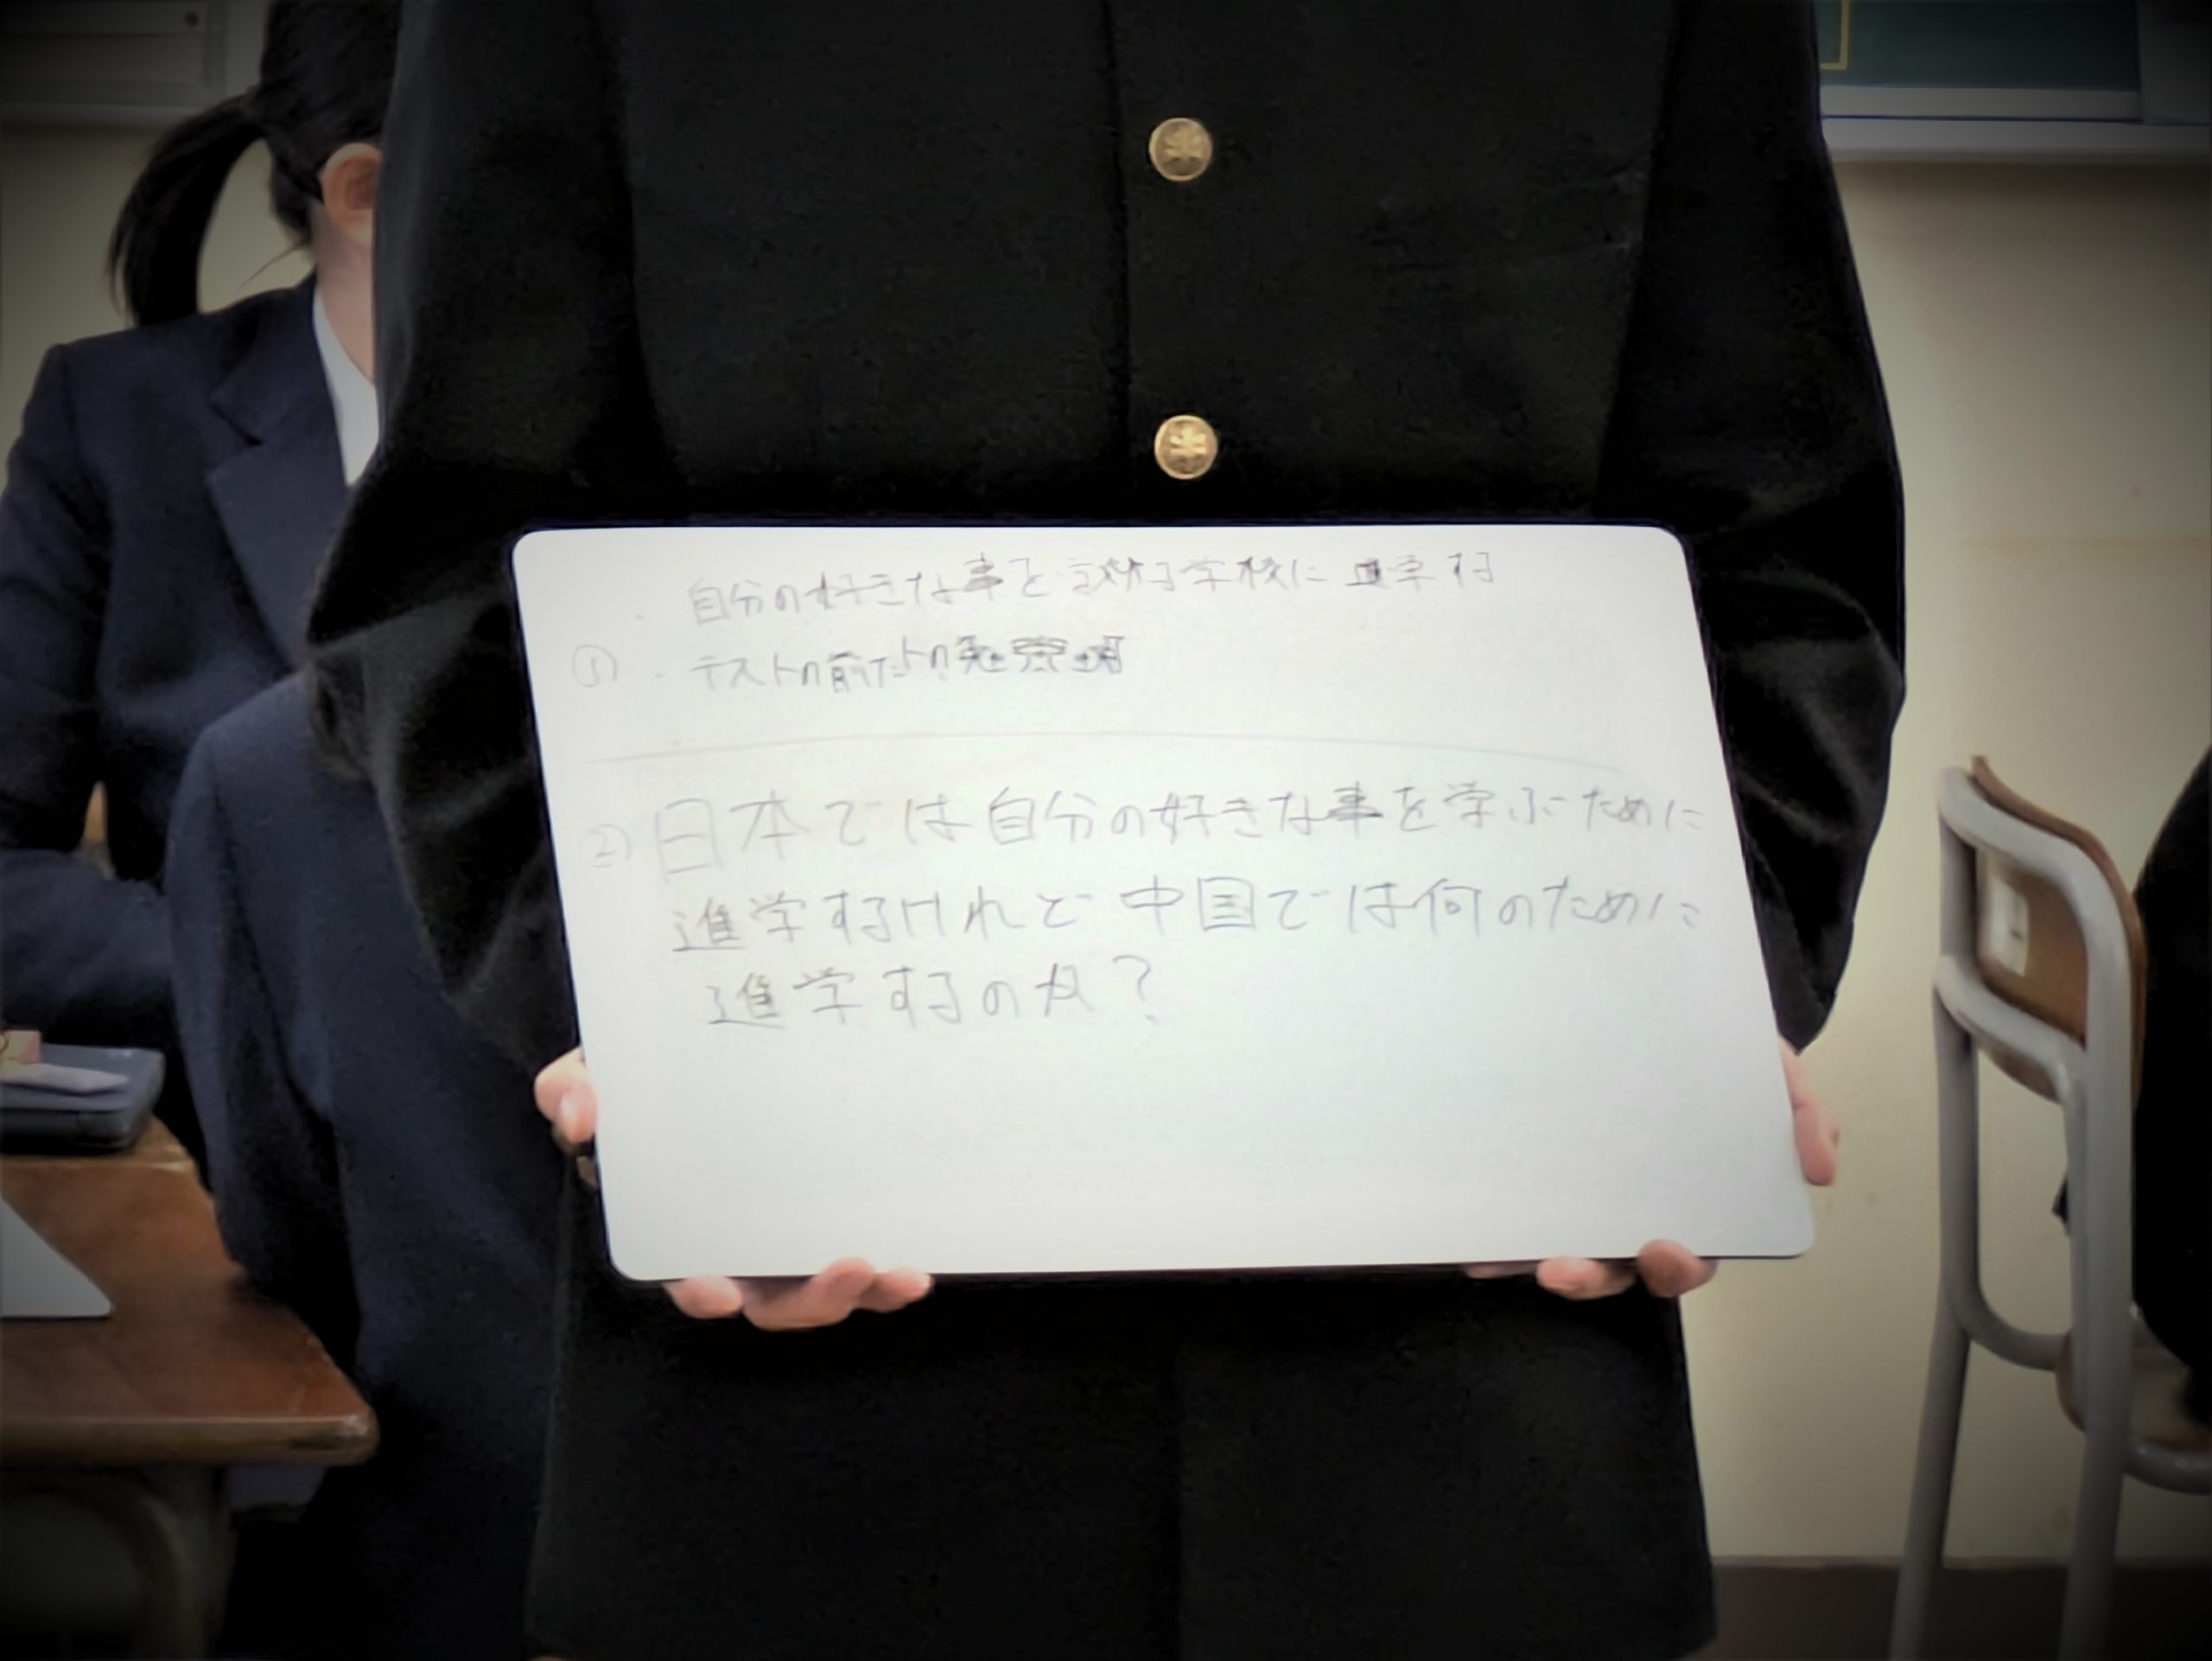 ・自分の好きな事を 学校に進学する
① ・テストの前だけの勉強
② 日本では自分の好きな事を学ぶために
進学するけれど中国では何のために
進学するのか？